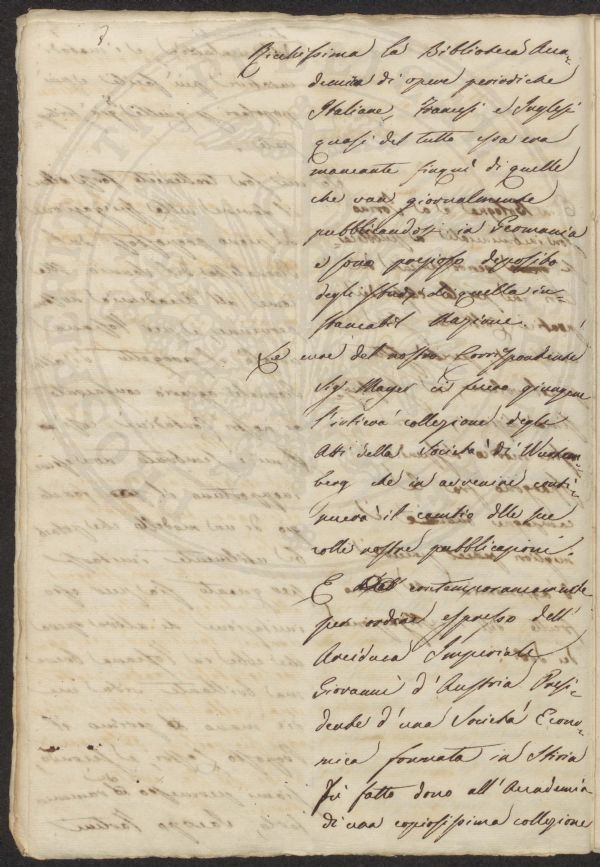 Ricchissima la Biblioteca Acca-
demica di opere periodiche
Italiane, Francesi e Inglesi
quasi del tutto essa era
mancante finquì di quelle
che van giornalmente
pubblicandosi in Germania
e sono prezioso deposito
degli studi di quella in-
stancabil Nazione.
Le cure del nostro Corrispondente
Sig. Mayer ci fecero giungere
l'intiera collezione degli
Atti della Società di Wurtem-
berg che in avvenire conti-
nuerà il cambio delle sue
colle nostre pubblicazioni.
E contemporaneamente
per ordine espresso dell'
Arciduca Imperiale
Giovanni d'Austria Presi-
dente d'una Società Econo-
mica formata in Stiria
fu fatto dono all'Accademia
di una copiosissima collezione